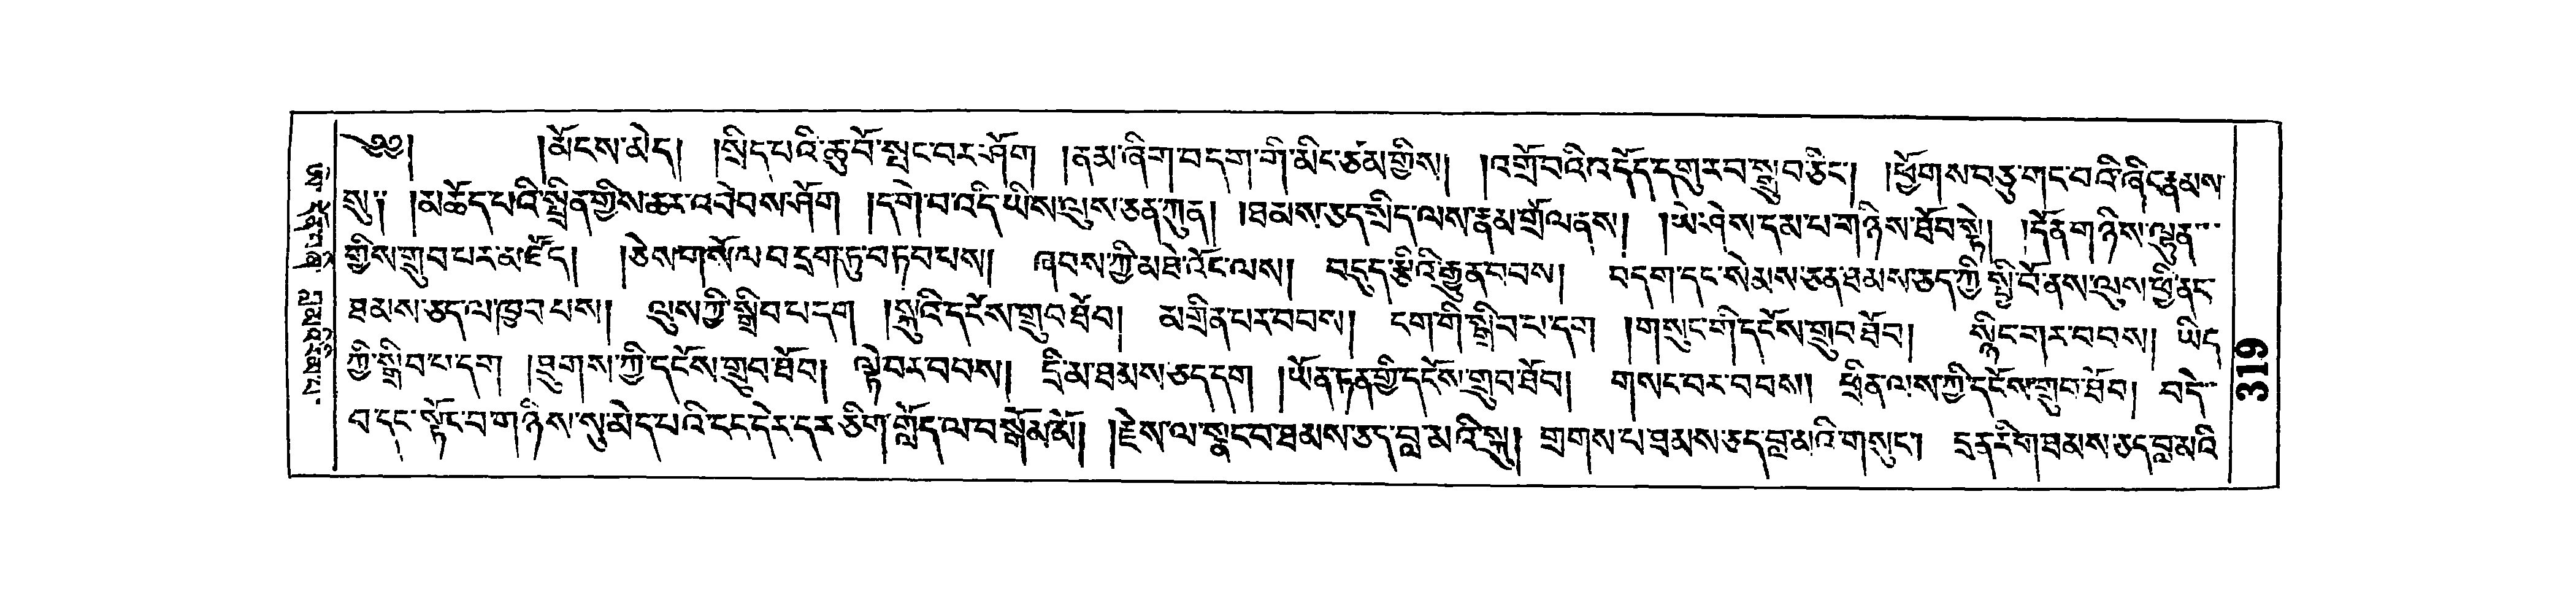 ༄༅། །མོངས་མེད། །སྲིད་པའི་ཆུ་བོ་སྤང་བར་ཤོག །ནམ་ཞིག་བདག་གི་མིང་ཙམ་གྱིས། །འགྲོ་བའི་འདོད་དགུར་བསྒྲུབ་ཅིང་། །ཕྱོགས་བཅུ་གང་བའི་ཞིང་རྣམས་
སུ་་ །མཆོད་པའི་སྤྲིན་གྱིས་ཆར་འབེབས་ཤོག །དགེ་བ་འདི་ཡིས་ལུས་ཅན་ཀུན། །ཐམས་ཅད་སྲིད་ལས་རྣམ་གྲོལ་ནས། །ཡེ་ཤེས་དམ་པ་གཉིས་ཐོབ་སྟེ། །དོན་གཉིས་ལྷུན་་་
གྱིས་གྲུབ་པར་མཛོད། །ཅེས་གསོལ་བ་དྲག་ཏུ་བཏབ་པས། ཞབས་ཀྱི་མཐེ་བོང་ལས། བདུད་རྩིའི་རྒྱུན་བབས། བདག་དང་སེམས་ཅན་ཐམས་ཅད་ཀྱི་སྤྱི་བོ་ནས་ལུས་ཕྱི་ནང་
ཐམས་ཅད་ལ་ཁྱབ་པས། ལུས་ཀྱི་སྒྲིབ་པ་དག །སྐུའི་དངོས་གྲུབ་ཐོབ། མགྲིན་པར་བབས། ངག་གི་སྒྲིབ་པ་དག །གསུང་གི་དངོས་གྲུབ་ཐོབ། སྙིང་གར་བབས། ཡིད་
ཀྱི་སྒྲིབ་པ་དག །ཐུགས་ཀྱི་དངོས་གྲུབ་ཐོབ། ལྟེ་བར་བབས། དྲི་མ་ཐམས་ཅད་དག །ཡོན་ཏན་གྱི་དངོས་གྲུབ་ཐོབ། གསང་བར་བབས། ཕྲིན་ལས་ཀྱི་དངོས་གྲུབ་ཐོབ། བདེ་་
བ་དང་སྟོང་བ་གཉིས་སུ་མེད་པའི་ངང་དེར་དར་ཅིག་གློད་ལ་བསྒོམ་མོ། །རྗེས་ལ་སྣང་བ་ཐམས་ཅད་བླ་མའི་སྐུ། གྲགས་པ་ཐམས་ཅད་བླ་མའི་གསུང་། དྲན་རིག་ཐམས་ཅད་བླ་མའི་
319